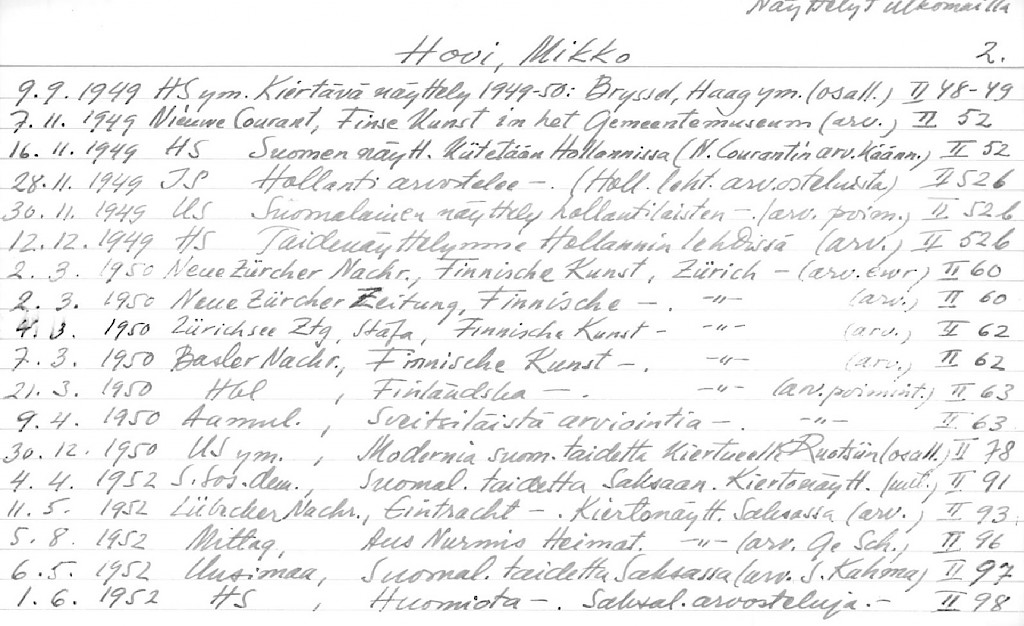 Näyttelyt ulkomailla
Hovi, Mikko 2.
9.9. 1949 HS ym. Kiertävä näyttely 1949-50: Bryssel, Haag ym. (osall.) II 48-49
7.11. 1949 Nieuwe Courant, Finse Kunst in het Gemeentemuseum (arv.) II 52
16.11. 1949 HS Suomen näytt. kiitetään Hollannissa (N. Courantin arv. käänn.) II 52
28.11. 1949 IS Hollanti arvostelee -. (Holl. leht. arvosteluista) II 52b
30.11. 1949 US Suomalainen näyttely hollantilaisten -. (arv. poim.) II 52b
12.12. 1949 HS Taidenäyttelymme Hollannin lehdissä (arv.) II 52b
2. 3. 1950 Neue Zürcher Nachr., Finnische Kunst, Zürich - (arv.) II 60
2. 3. 1950 Neue Zürcher Zeitung, Finnische -. -"- (arv.) II 60
4. 3. 1950 Zürichsee Ztg, Stäfa, Finnische Kunst - -"- (arv.) II 62
7. 3. 1950 Basler Nachr., Finnische Kunst -. -"- (arv.) II 62
21. 3. 1950 Hbl, Finländska -. -"- (arv. poimint.) II 63
9. 4. 1950 Aamul., Sveitsiläistä arviointia -. -"- II 63
30. 12. 1950 US ym., Modernia suom. taidetta kiertueelle Ruotsiin (osall.) II 78
4. 4. 1952 S. Sos. dem., Suomal. taidetta Saksaan. Kiertonäytt. II 91
11. 5. 1952 Lübecker Nachr., Eintracht -. Kiertonäytt. Saksassa (arv.) II 93
5. 8. 1952 Mittag, Aus Nurmis Heimat. -"- (arv. Ge Sch.) II 96
6. 5. 1952 Uusimaa, Suomal. taidetta Saksassa (arv. S. Kahma) II 97
1. 6. 1952 HS, Huomiota -. Saksal. arvosteluja. - II 98